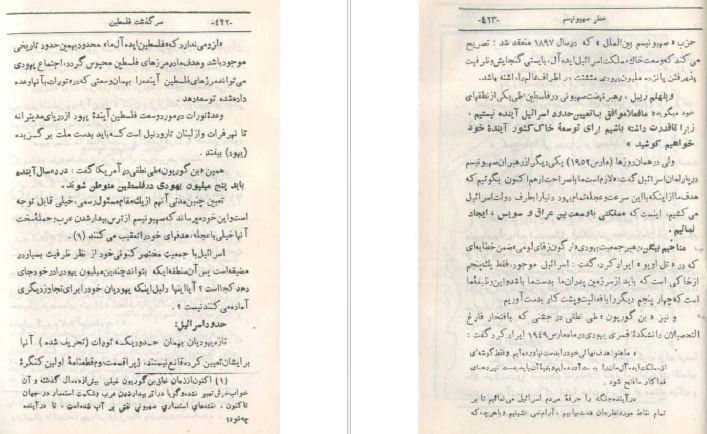 -۴۲۲- سرگذشت فلسطین
«لزومی ندارد که «فلسطین ایده‌آل ما» محدود بهمین حدود تاریخی
موجود باشد و هدف ما در مرزهای فلسطین محبوس گردد، اجتماع یهودی
می‌تواند مرزهای فلسطین آینده را بهمان وسعتی که در تورات بآنها وعده
داده شده توسعه دهد.
وعدهٔ تورات در مورد وسعت فلسطین آیندهٔ یهود از دریای مدیترانه
تا نهر فرات و از لبنان تا رود نیل است که باید بدست ملت برگزیده
(یهود) بیفتد.
همین «بن گوریون» طی نطقی در آمریکا گفت: در ده سال آینده
باید پنج میلیون یهودی در فلسطین متوطن شوند.
تعیین چنین مدتی آنهم از یک مقام مسئول رسمی، خیلی قابل توجه
است و این خود میرساند که صهیونیسم از ترس بیدار شدن عرب و حملهٔ سخت
آنها خیلی با عجله، هدفهای خود را تعقیب می‌کنند (۱).
اسرائیل با جمعیت مختصر کنونی خود از نظر ظرفیت بسیار در
مضیقه است پس آن منطقه‌ایکه بتواند چندین میلیون یهود را در خود جای
دهد کجا است؟ آیا اینها دلیل اینکه یهودیان خود را برای تجاوز دیگری
آماده می‌کنند نیست؟.
حدود اسرائیل:
تازه یهودیان بهمان حدودیکه تورات (تحریف شده) آنها
برایشان تعیین کرده قانع نیستند، زیرا قسمت دوم قطعنامهٔ اولین کنگرهٔ
(۱) اکنون از زمان نطق بن گوریون خیلی بیش از ده سال گذشته و آن
خواب خرش تعبیر نشده و گویا در اثر بیدار شدن عرب و شکست استعمار در جهان
تاکنون، نقشه‌های استعماری صهیونی نقش بر آب شده است، تا در آینده
چه شود؟
-۴۲۳- خطر صهیونیسم
حزب «صهیونیسم بین‌الملل» که در سال ۱۸۹۷ منعقد شد: تصریح
می‌کند که وسعت خاک مملکت اسرائیل ایده‌آل، بایستی گنجایش و ظرفیت
پذیرفتن پانزده ملیون یهودی متشتت در اطراف عالم را داشته باشد.
ویلهلم ریبل، رهبر نهضت صهیونی در فلسطین طی یکی از نطقهای
خود میگوید: «ما فعلا موافق با تعیین حدود اسرائیل آینده نیستیم،
زیرا تا قدرت داشته باشیم برای توسعهٔ خاک کشور آیندهٔ خود
خواهیم کوشید»
ولی در همان روزها (مارس ۱۹۵۲) یکی دیگر از رهبران صهیونیسم
در پارلمان اسرائیل گفت: «لازم است ما با صراحت از هم اکنون بگوئیم که
هدف ما از اینکه با این سرعت و عجله تمام یهود دنیا را بطرف دولت اسرائیل
می‌کشیم، اینست که مملکتی با وسعت بین عراق و سویس، ایجاد
نمائیم.
مناحیم بیگن، رهبر جمعیت یهودی «ارگون زفای لومی» ضمن خطابه‌ای
که در «تل اویو» ایراد کرد، گفت: اسرائیل موجود، فقط یک پنجم
از خاکی است که باید از سرزمین پدران ما بدست ما باشد و این وظیفهٔ ما
است که چهار پنجم دیگر را با فعالیت و پشت کار بدست آوریم.
و نیز «بن گوریون» طی نطقی در جشنی که بافتخار فارغ
التحصیلان دانشکدهٔ افسری یهودی در ماه مارس ۱۹۴۹ ایراد کرد گفت:
«ما هنوز هدف نهائی خود را بدست نیاورده‌ایم و فقط گوشه‌ای
از مملکت ایده‌آل‌مان را به دست آورده‌ایم و بقیهٔ آن باید بدست نیروهای
فداکار ما فتح شود.
در آینده جنگ را حرفهٔ مردم اسرائیل می‌نمائیم تا بر
تمام نقاط مورد نظرمان دست بیابیم، آرام نمی‌نشینیم و هر چه که